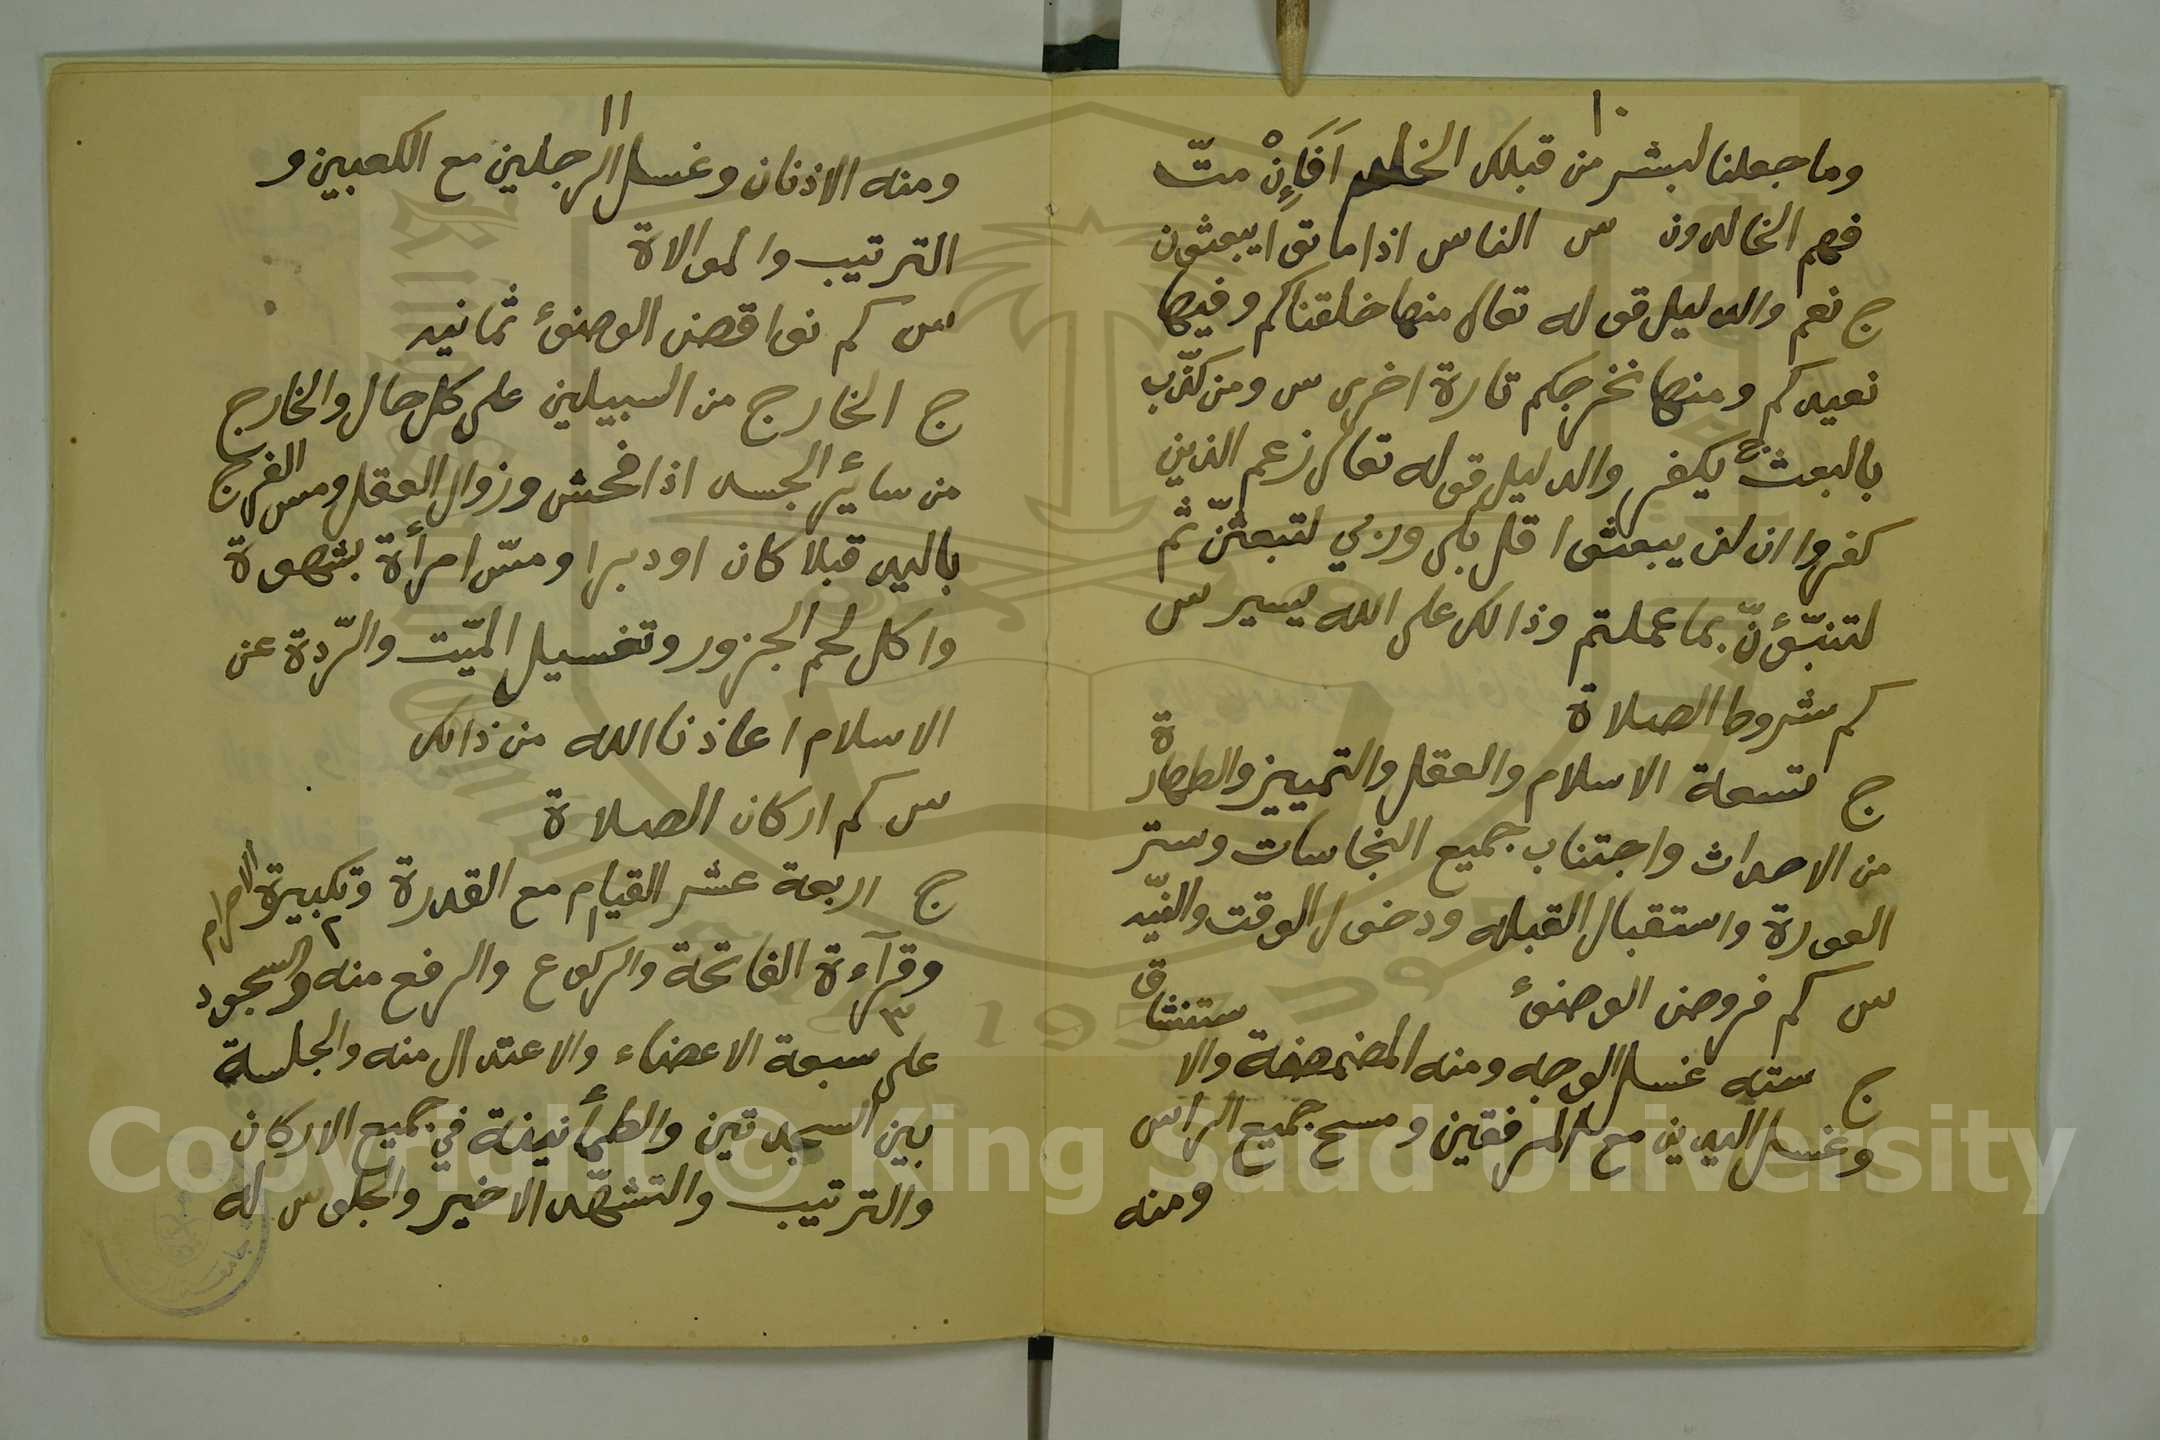 ١٠
وما جعلنا لبشر من قبلك الخلد اَفَإِنْ متّ
فهم الخالدون س الناس اذا ماتوا يبعثون
ج نعم والدليل قوله تعالى منها خلقناكم وفيها
نعيدكم ومنها نخرجكم تارة اخرى س ومن كذّب
بالبعث يكفر والدليل قوله تعالى زعم الذين
كفروا ان لن يبعثوا قل بلى وربي لتبعثنّ ثم
لتنبّؤنّ بما عملتم وذالك على الله يسير س
كم شروط الصلاة
ج تسعة الاسلام والعقل والتمييز والطهارة
من الاحداث واجتناب جميع النجاسات وستر
العورة واستقبال القبله ودخول الوقت والنيّه
س كم فروض الوضوء
ج سته غسل الوجه ومنه المضمضة والاستنشاق
وغسل اليدين مع المرفقين ومسح جميع الراس
ومنه
١١
ومنه الاذنان وغسل الرجلين مع الكعبين و
الترتيب والموالاة
س كم نواقض الوضوء ثمانيه
ج الخارج من السبيلين على كل حال والخارج
من سائر الجسد اذا فحش وزوال العقل ومس الفرج
باليد قبلا كان او دبرا ومسّ امرأة بشهوة
واكل لحم الجزور وتغسيل الميّت والرّدة عن
الاسلام اعاذنا الله من ذالك
س كم اركان الصلاة
ج اربعة عشر القيام مع القدرة وتكبيرة الاحرام
وقرآءة الفاتحة والركوع والرفع منه والسجود
على سبعة الاعضاء والاعتدال منه والجلسة
بين السجدتين والطمأنينة في جميع الاركان
والترتيب والتشهّد الاخير والجلوس له
Copyright © King Saud University